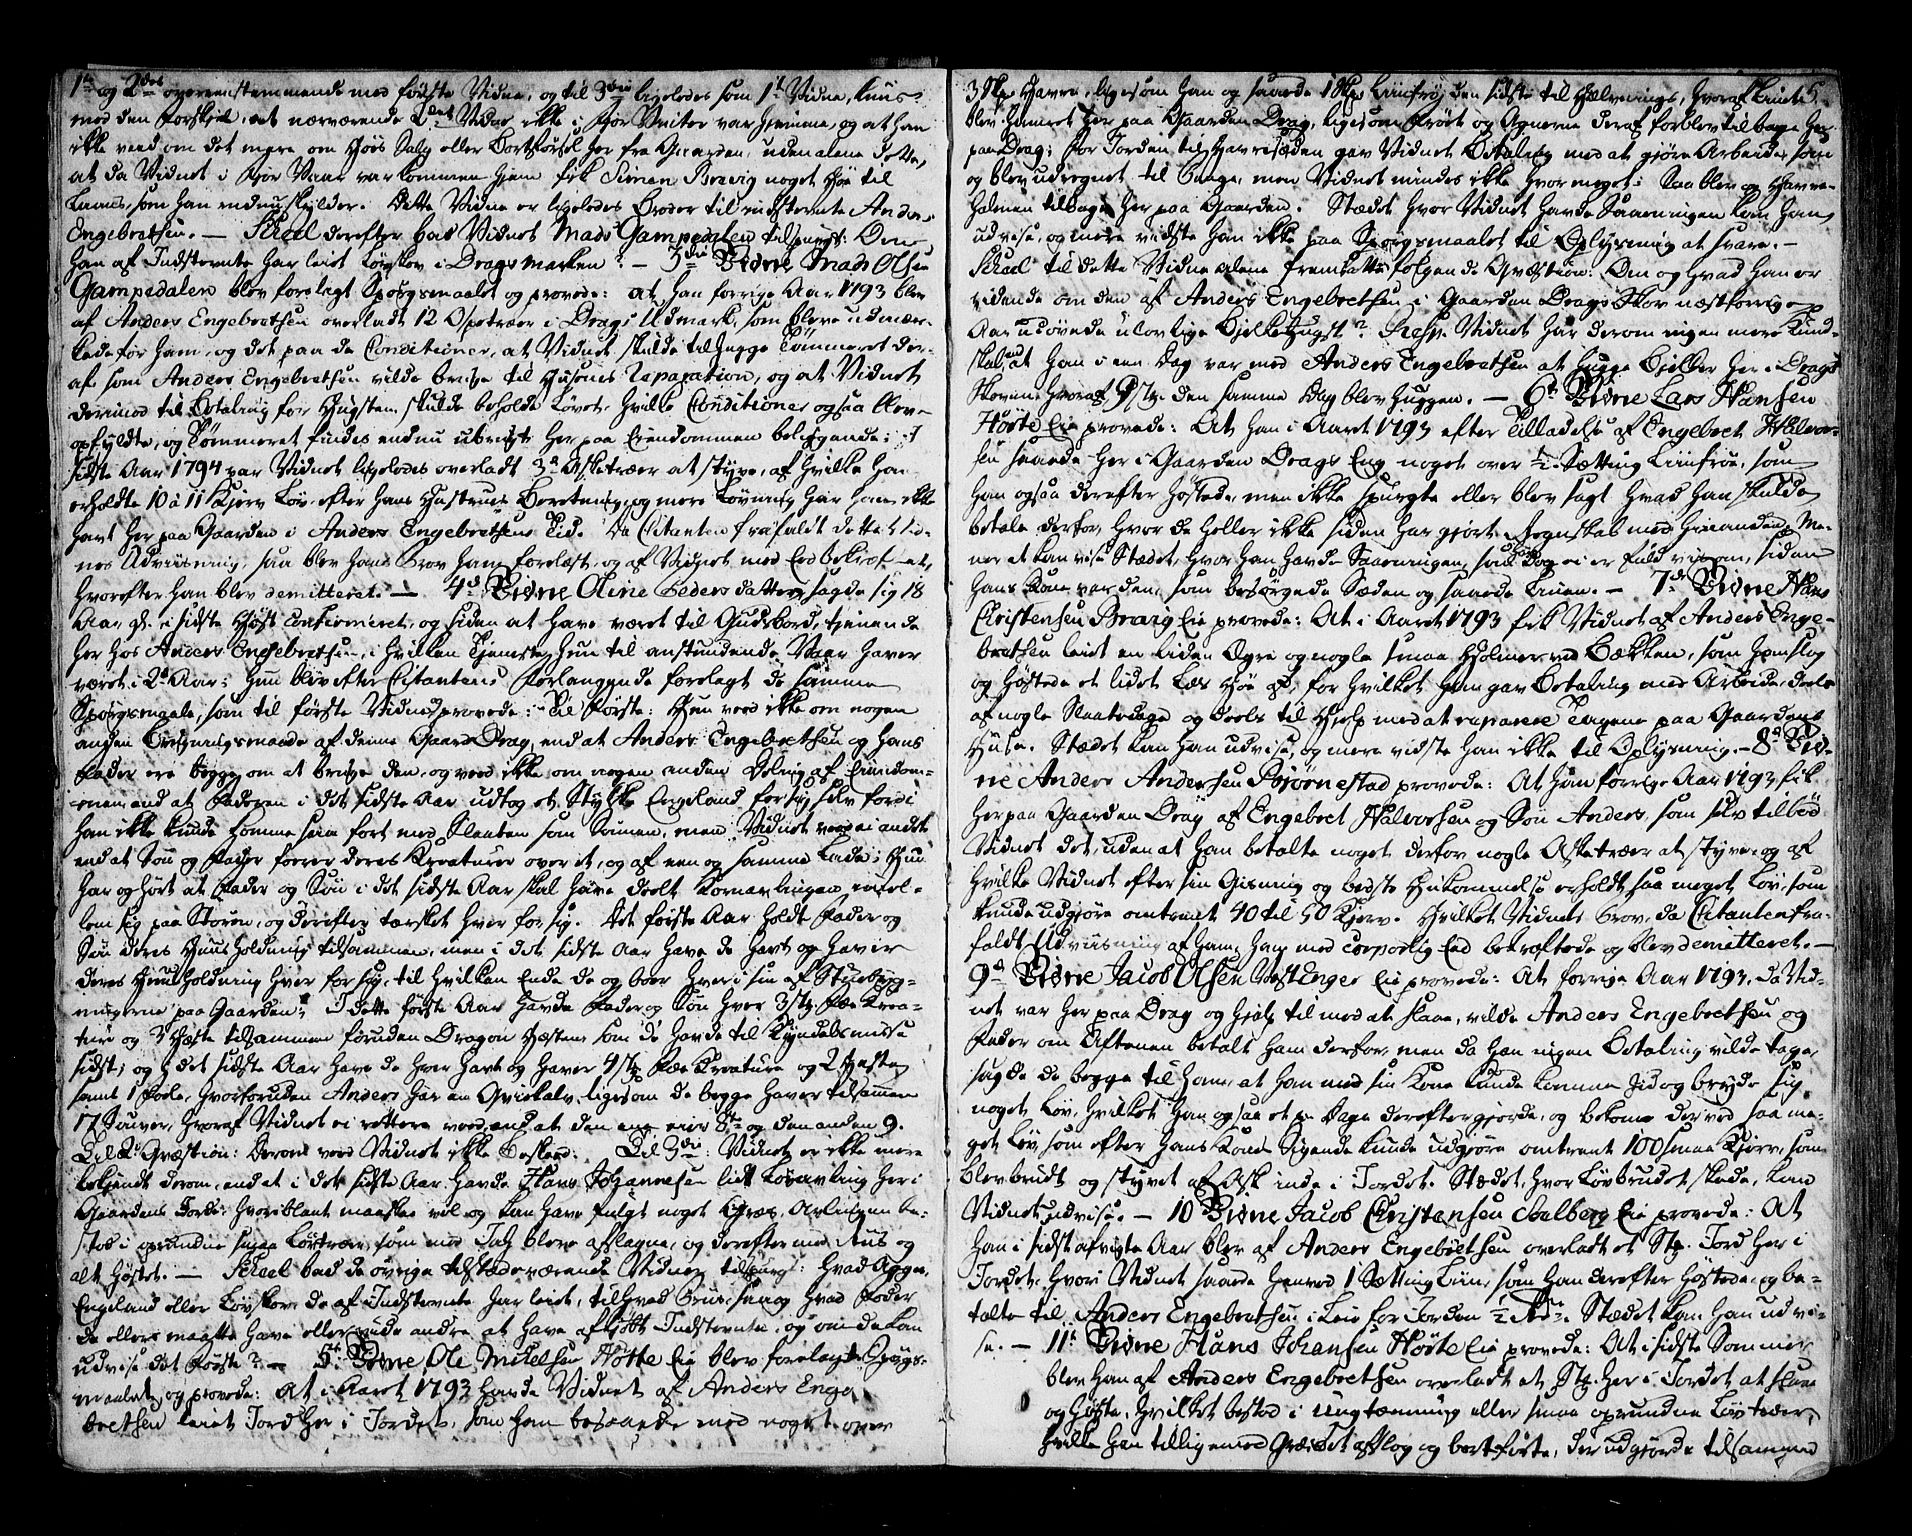 1te og 2det overeenstemmende med første Vidne, og til 3die ligeledes som 1te Vidne, kuns
med den Forskjel, at nærværende 2det Vidne ikke i Fjor Vinter var hiemme, og at han
ikke veed om det mere om Høes Salg eller Bortførsel her fra Gaarden, uden alene dette,
at da Vidnet i Fjor Vaar var kommen hjem fik Simen Brevig noget Høe til
Laans, som han endnu skylder. Dette Vidne er ligeledes Broder til indstevnte Anders
Engebretsen. – Scheel derefter bad Vidnet Mads Gampedalen tilspurgt: Om
han af Indstevnte har leiet Løvskov i Drags Marken? – 3die Vidne Mads Olsen
Gampedalen blev forelagt Spørgsmaalet og provede: at han forrige Aar 1793 blev
af Anders Engebrethsen overladt 12 Ospetræer i Drags Udmark, som bleve udmær-
kede for ham, og det paa de Conditioner, at Vidnet skulde tilhugge Tømmeret der-
af, som Anders Engebrethsen vilde bruge til Husenes Reparation, og at Vidnet
derimod til Betaling for Hugsten skulde beholde Løvet, hvilke Conditioner ogsaa blev
opfyldte, og Tømmeret findes endnu ubrugt her paa Eiendommen beliggende; I
sidste Aar 1794 var Vidnet ligeledes overladt 3de Asketræer at styve, af hvilke han
erholdte 10 à 11 Kjerv Løv efter hans Hustrues Beretning, og mere Løvning har han ikke
havt her paa Gaarden i Anders Engebrethsens Tid. Da Citanten frafaldt dette Vid-
nes Udviisning, saa blev hans Prov ham forelæst, og af Vidnet med Eed bekræftet,
hvorefter han blev demitteret. – 4de Vidne Aine Pedersdatter sagde sig 18
Aar gl. i sidste Høst confirmeret, og siden at have været til Guds bord, tjenende
her hos Anders Engebrethsen, i hvilken Tjeneste hun til anstundende Vaar haver
været i 2de Aar; Hun blev efter Citantens Forlangende forelagt de samme
Spørgsmaale, som til første Vidne provede: Til Første: Hun veed ikke om nogen
anden Brugningsmaade af denne Gaard Drag, end at Anders Engebrethsen og hans
Fader ere begge om at bruge den, og veed ikke om nogen anden Deling af Eiendom-
men end at Faderen i det sidste Aar udtog et Stykke Engeland for sig selv fordi
han ikke kunde komme saa fort med Slaatten som Sønnen, men Vidnet veed ei andet
end at Søn og Fader forer deres Kreaturer over et, og af een og samme Lade; Hun
har og hørt at Fader og Søn i det sidste Aar skal have deelt Kornavlingen imel-
lem sig paa Støren, og derefter tærsket hver for sig. Det første Aar holdt Fader og
Søn deres Huusholdning tilsammen, men i det sidste Aar have de havt og haver
deres Huusholdning hver for sig, til hvilken Ende de og boer hver i sin af Stuebyg-
ningerne paa Gaarden; I dette første Aar havde Fader og Søn hver 3 stk. Fæe Krea-
ture og 3 Hæste tilsammen foruden Dragon Hesten, som de havde til Kyndelsmisse
sidst; og i det sidste Aar have de hver havt og haver 4 stk Fæe Kreature og 2 Heste
samt 1 Fole, hvorforuden Anders har en Qviekalv, ligesom de begge haver tilsammen
17 Souver, hvoraf Vidnet ei rettere veed, end at den ene eier 8te og den anden 9.
Til 2det Qvæstion: Derom veed Vidnet ikke Beskeed. Til 3die: Vidnet er ikke mere
bekjendt derom, end at i det sidste Aar havde Hans Johannesen lidt Kornavling her i
Gaardens Jorde, hvoriblant maaskee vel og kan have fulgt noget Græs. Avlingen be-
stod i oprundne smaa Løvtræer, som med Jah bleve afslagne, og derefter med Riis og
alt høstet. – Scheel bad de øvrige tilstædeværende Vidner tilspurgt: Hvad Agger,
Engeland eller Løvskov de af Indstevnte har leiet, til hvad Brug, samt hvad Foder
de ellers maatte have eller vide andre at have afkjøbt Indstevnte, og om de kan
udvise det Første? – 5te Vidne Ole Mikelsen Høtte Eie blev forelagt Spørgs-
maalet og provede: at i Aaret 1793 havde Vidnet af Anders Enge
brethsen leiet Jord her i Jordet, som han besaaede med noget over
3 Skp Havre, ligesom han og saaede 1 Skp Liinfrøe den sidste til Halvnings, hvoraf Linet 5.
blev henført her paa Gaarden Drag, ligesom Frøet og Agnerne deraf forblev tilbage her
paa Drag; For Jorden til Havresæden gav Vidnet Betaling med at gjøre Arbeide, som
og blev udregnet til Penge, men Vidnet mindes ikke hvor meget; Saa blev og Havre-
halmen tilbage her paa Gaarden. Stædet hvor Vidnet havde Saaningen kan han
udvise, og mere vidste han ikke paa Spørgsmaalet til Oplysning at svare. –
Scheel til dette Vidne alene fremsatte følgende Qvæstion: Om og hvad han er
vidende om den af Anders Engebrethsen i Gaarden Drags Skov næstforrige
Aar udøvede ulovlige Bjelkehugst? Resp: Vidnet har derom ingen mere Kund-
skab, end at han i een Dag var med Anders Engebrethsen at hugge Bjelker her i Drags
Skoven, hvoraf 9 stk. den samme Dag blev huggen. – 6te Vidne Lars Hansen
Høste Eie provede: At han i Aaret 1793 efter Tilladelse af Engebret Halvor-
sen saaede her i Gaarden Drags Eng noget over ½ Sætting Liinfrøe, som
han ogsaa derefter høstede, men ikke spurgte eller blev sagt hvad han skulde
betale derfor, hvor de heller ikke siden har gjort Regnskab med hinanden. Me-
ner at kan vise Stædet, hvor han havde Saaeningen, som han dog ei er fuld vis om, siden
hans Kone var den, som besørgede Sæden og saaede Linen. – 7de Vidne Hans
Christensen Bravig Eie provede: At i Aaret 1793 fik Vidnet af Anders Enge-
brethsen leiet en liden Øyre og nogle smaa Holmer ved Bækken, som han slog
og høstede et lidet Læs Høe af, for hvilket han gav Betaling med Arbeide, deels
af nogle Slaattedage og deels til Hjelp med at reparere Tagene paa Gaardens
Huse. Stædet kan han udvise, og mere vidste han ikke til Oplysning. – 8de Vid-
ne Anders Andersen Bjørnestad provede: At han forrige Aar 1793 fik
her paa Gaarden Drag af Engebret Halvorsen og Søn Anders, som selv tilbød
Vidnet det, uden at han betalte noget derfor, nogle Asketræer at styve, og af
hvilke Vidnet efter sin Gisning og bedste Hukommelse erholdt saa meget Løv, som
kunde udgjøre omtrent 40 til 50 Kjerv. Hvilket Vidnets Prov, da Citanten fra-
faldt Udviisning af ham, han med corporlig Eed bekræftede og blev demitteret. –
9de Vidne Jacob Olsen Vest Enger Eie provede: At forrige Aar 1793, da Vid-
net var her paa Drag og hjalp til med at slaae, vilde Anders Engebrethsen og
Fader om Aftenen betalt ham derfor, men da han ingen Betaling vilde tage,
sagde de begge til ham, at han med sin Kone kunde komme hid og bryde sig
noget Løv, hvilket han ogsaa et p. Dage derefter gjorde, og bekom derved saa me-
get Løv som efter hans Kones Sigende kunde udgjøre omtrent 100 smaa Kjerv, som
blev brudt og styvet af Ask inde i Jordet. Stædet, hvor Løvbruddet skede, kan
Vidnet udvise. – 10 Vidne Jacob Christensen Aalberg Eie provede: At
han i sidst afvigte Aar blev af Anders Engebretsen overladt et Stk. Jord her i
Jordet, hvori Vidnet saaede henved 1 Sætting Liin, som han derefter høstede, og be-
talte til Anders Engebrethsen i Leie for Jorden ½ Rdr. Stædet kan han udvi-
se. – 11te Vidne Hans Johansen Høste Eie provede: At i sidste Sommer
blev han af Anders Engebrethsen overladt et Stk. her i Jordet at slaae
og høste, hvilket bestod i ungtænning eller smaae oprundne Løvtræer,
hvilke han tilligemed Græsset afslog og bortførte, der udgjorde tilsammen